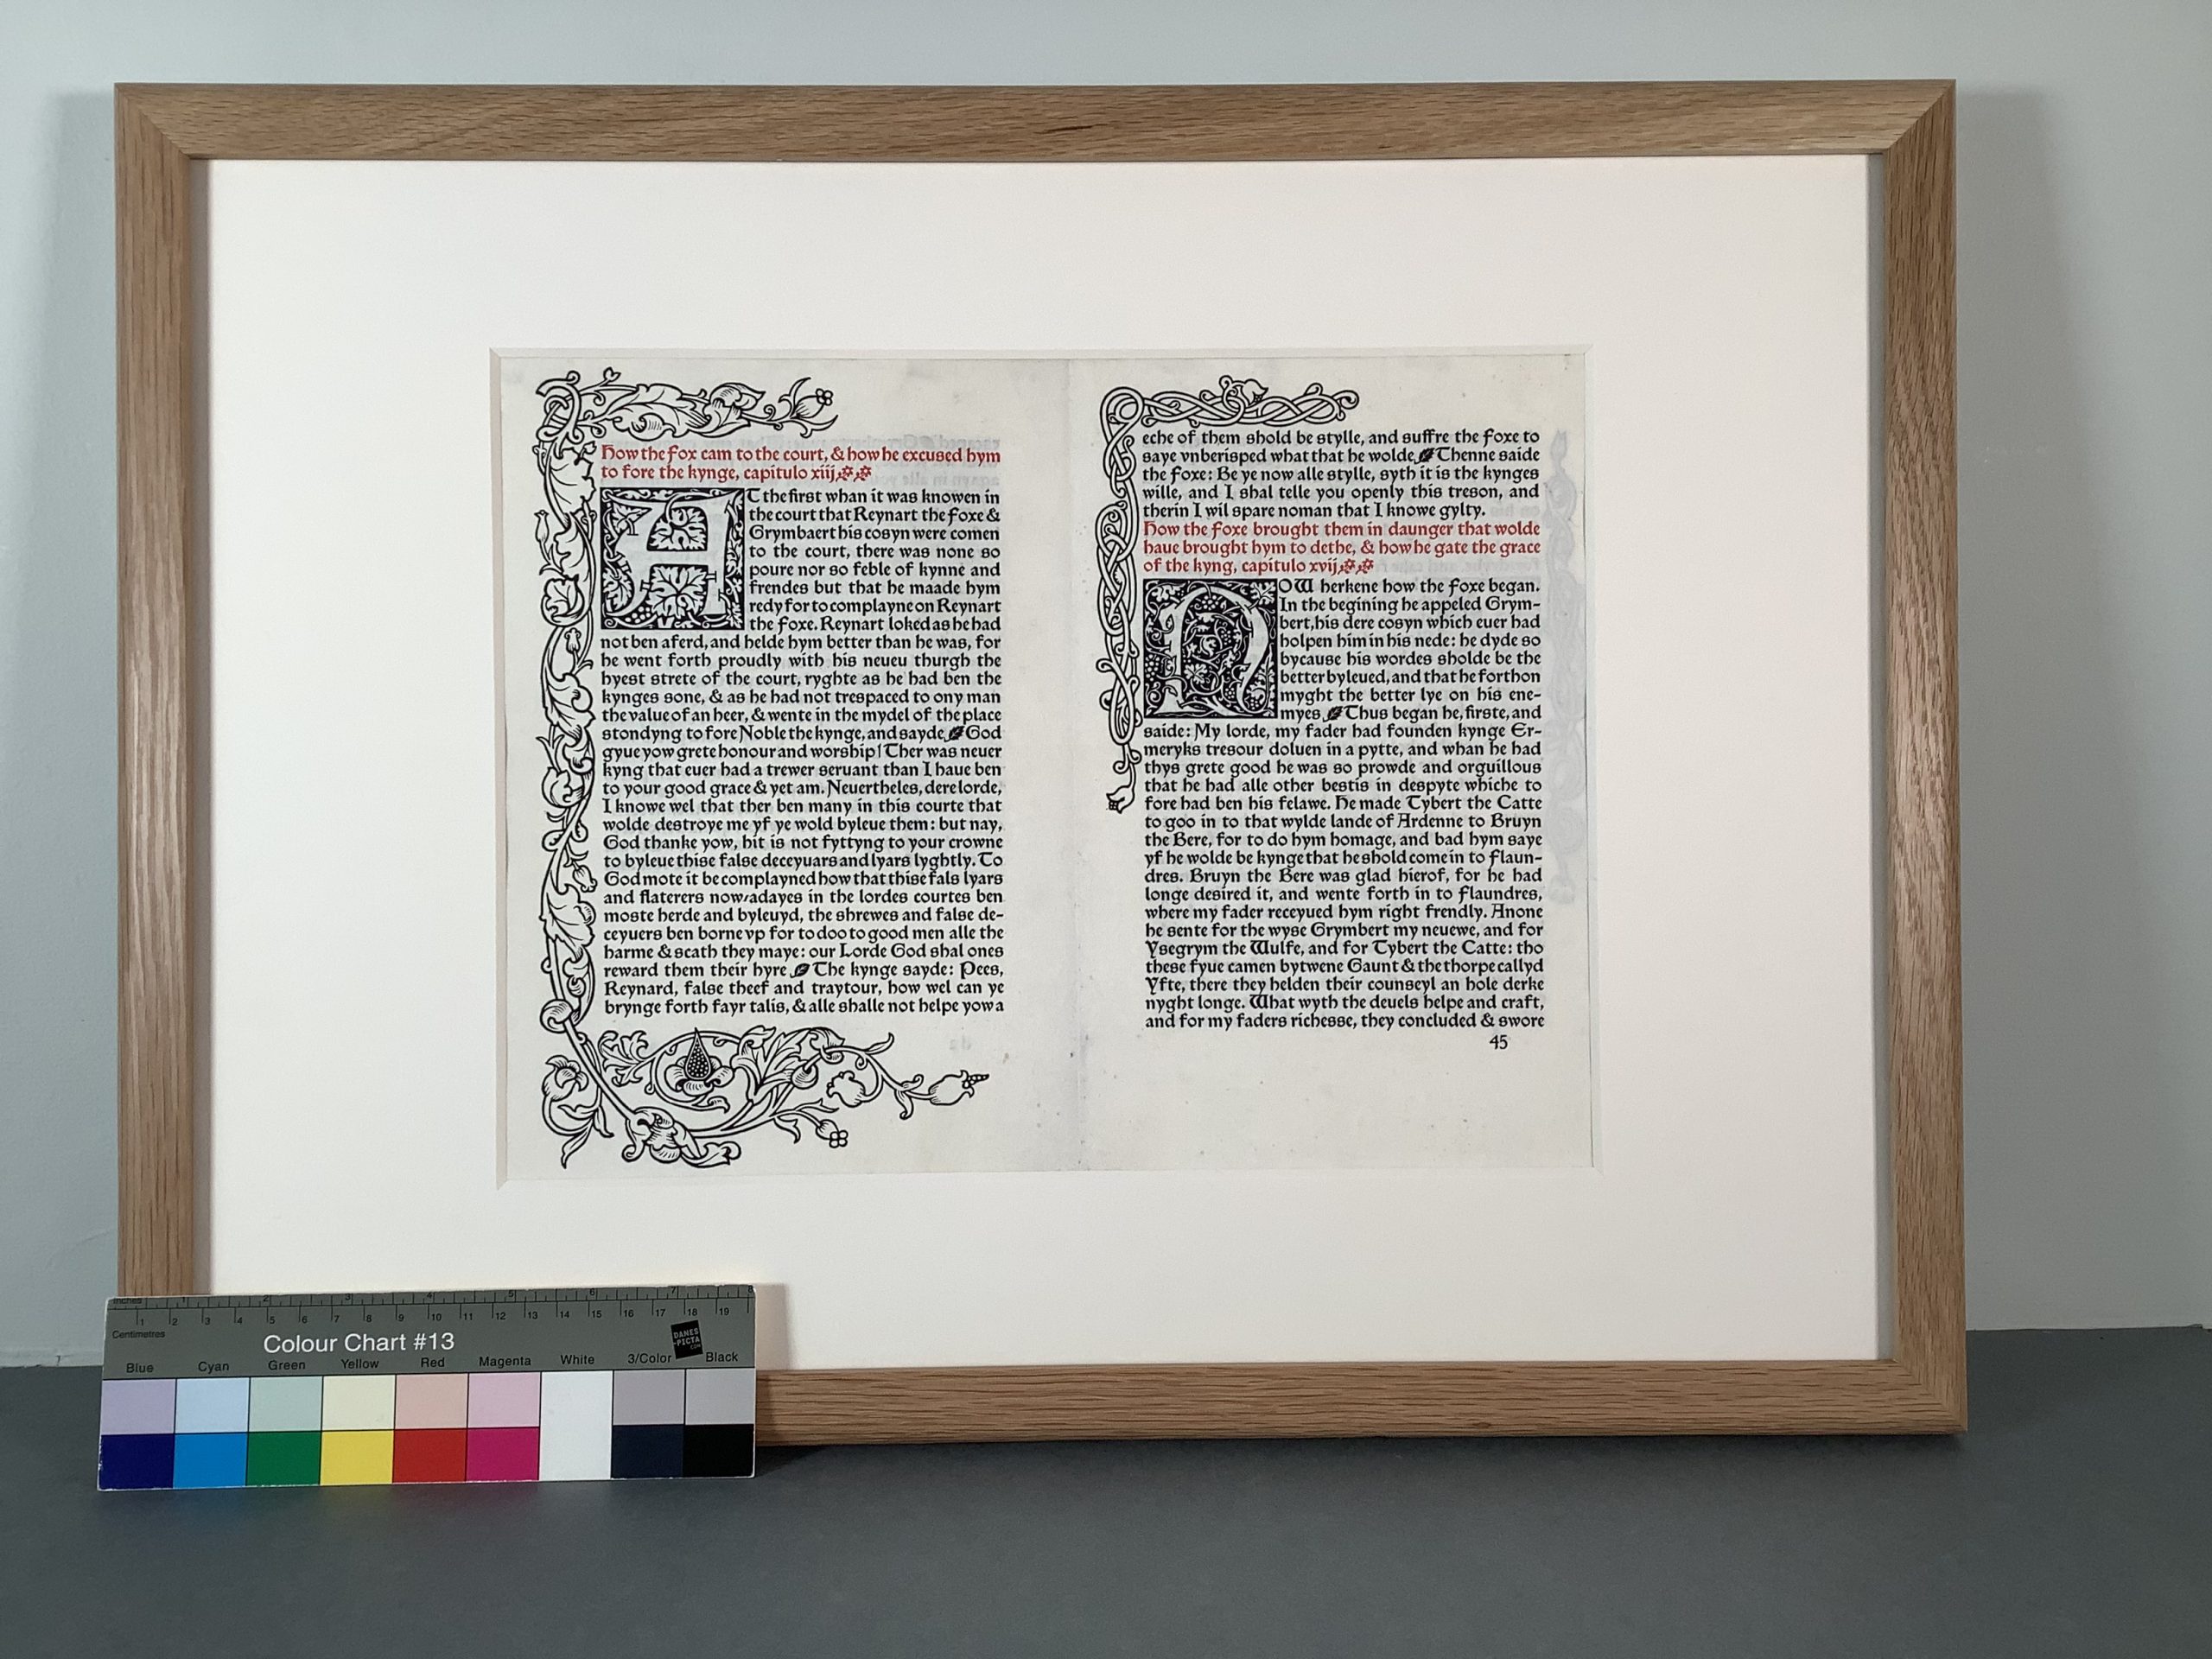 How the Fox cam to the court, & how he excused hym
to fore the kynge, capitulo xiij
AT the first whan it was knowen in
the court that Reynart the Foxe &
Grymbaert his cosyn were comen
to the court, there was none so
poure nor so feble of kynne and
frendes but that he maade hym
redy for to complayne on Reynart
the Foxe. Reynart loked as he had
not ben aferd, and helde hym better than he was, for
he went forth proudly with his neueu thurgh the
hyest strete of the court, ryghte as he had ben the
kynges sone, & as he had not trespaced to ony man
the value of an heer, & wente in the mydel of the place
stondyng to fore Noble the kynge, and sayde God
gyue yow grete honour and worship! Ther was neuer
kyng that euer had a trewer seruant than I haue ben
to your good grace & yet am. Neuertheles, dere lorde,
I knowe wel that ther ben many in this courte that
wolde destroye me yf ye wold byleue them: but nay,
God thanke yow, hit is not fyttyng to your crowne
to byleue thise false deceyuars and lyars lyghtly. To
God mote it be complayned how that thise fals lyars
and flaterers now-adayes in the lordes courtes ben
moste herde and byleuyd, the shrewes and false de-
ceyuers ben borne vp for to doo to good men alle the
harme & scath they maye: our Lorde God shal ones
reward them their hyre The kynge sayde: Pees,
Reynard, false theef and traytour, how wel can ye
brynge forth fayr talis, & alle shalle not helpe yow a
eche of them shold be stylle, and suffre the Foxe to
saye vnberisped what that he wolde Thenne saide
the Foxe: Be ye now alle stylle, syth it is the kynges
wille, and I shal telle you openly this treson, and
therin I wil spare noman that I knowe gylty.
How the Foxe brought them in daunger that wolde
haue brought hym to dethe, & how he gate the grace
of the kyng, capitulo xvij
NOW herkene how the Foxe began.
In the begining he appeled Grym-
bert, his dere cosyn which euer had
holpen him in his nede: he dyde so
bycause his wordes sholde be the
better byleued, and that he forthon
myght the better lye on his ene-
myes Thus began he, firste, and
saide: My lorde, my fader had founden kynge Er-
meryks tresour doluen in a pytte, and whan he had
thys grete good he was so prowde and orguillous
that he had alle other bestis in despyte whiche to
fore had ben his felawe. He made Tybert the Catte
to goo in to that wylde lande of Ardenne to Bruyn
the Bere, for to do hym homage, and bad hym saye
yf he wolde be kynge that he shold come in to Flaun-
dres. Bruyn the Bere was glad hierof, for he had
longe desired it, and wente forth in to Flaundres,
where my fader receyued hym right frendly. Anone
he sente for the wyse Grymbert my neuewe, and for
Ysegrym the Wulfe, and for Tybert the Catte: tho
these fyue camen bytwene Gaunt & the thorpe callyd
Yfte, there they helden their counseyl an hole derke
nyght longe. What wyth the deuels helpe and craft,
and for my faders richesse, they concluded & swore
45
Inches 1 2 3 4 5 6 7 8
1 2 3 4 5 6 7 8 9 10 11 12 13 14 15 16 17 18 19
Centimetres
Colour Chart #13
DANES
-PICTA
.COM
Blue Cyan Green Yellow Red Magenta White 3/Color Black